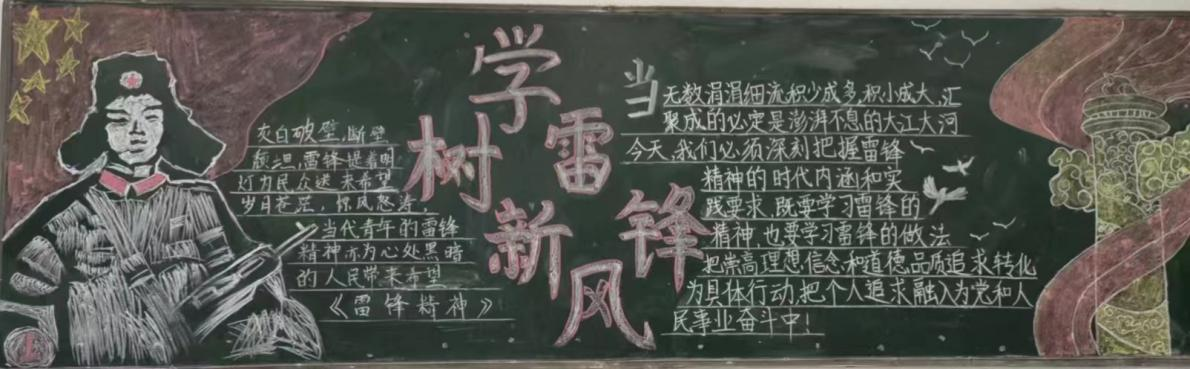 灰白破壁,断壁
颓垣,雷锋提着明
灯为民众送来希望
岁月苍茫,惊风怒涛,
当代青年的雷锋
精神亦为心处黑暗
的人民带来希望
《雷锋精神》
学雷锋
树新风
当无数涓涓细流积少成多,积小成大,汇
聚成的必定是澎湃不息的大江大河
今天,我们必须深刻把握雷锋
精神的时代内涵和实
践要求,既要学习雷锋的
精神,也要学习雷锋的做法
把崇高理想信念和道德品质追求转化
为具体行动,把个人追求融入为党和人
民事业奋斗中!